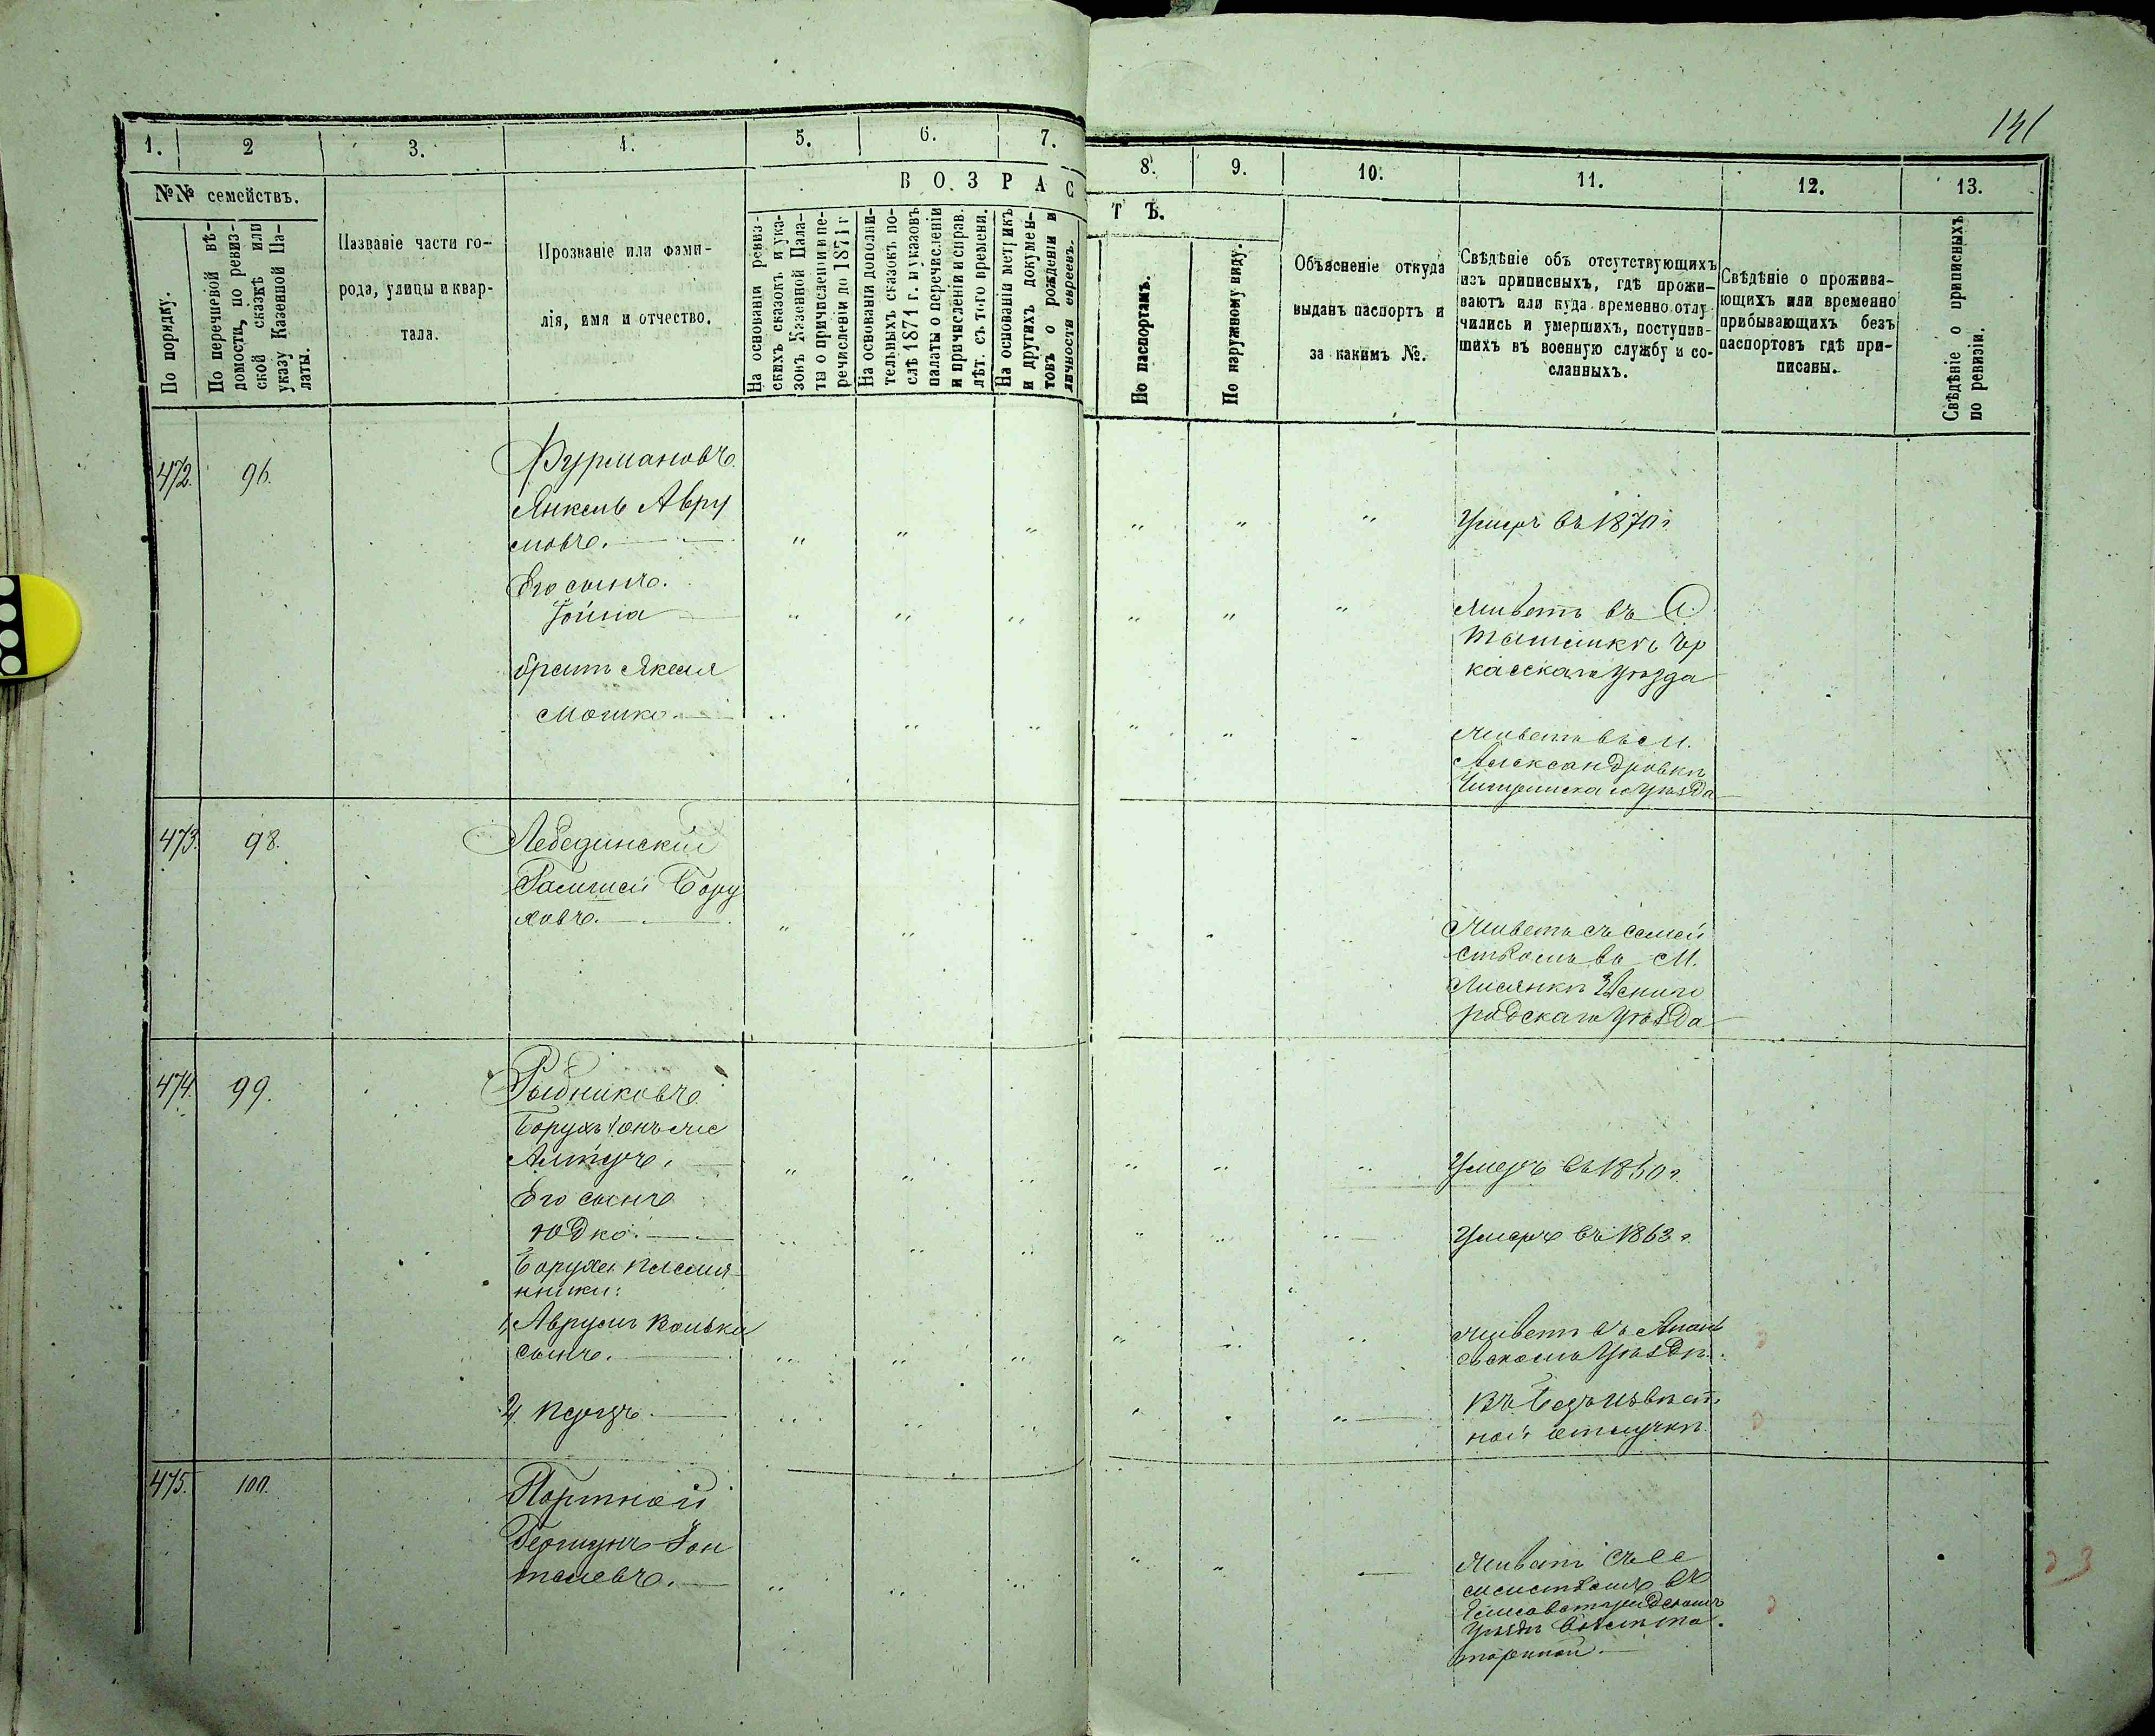 141
1. 2 3. 4. 5. 6. 7. 8. 9. 10. 11. 12. 13.
№№ семействъ.
По порядку.
По перечневой вѣ-
домости, по ревиз-
ской сказкѣ или
указу Казенной Па-
латы.
Названіе части го-
рода, улицы и квар-
тала.
Прозваніе или фами-
лія, имя и отчество.
ВОЗРАСТЪ.
На основаніи ревиз-
скихъ сказокъ и ука-
зовъ Казенной Пала-
ты о причисленіи и пе-
речисленіи до 1871 г
На основаніи дополни-
тельныхъ сказокъ по-
слѣ 1871 г. и указовъ
палаты о перечисленіи
и причисленіи и справ.
лѣт. съ того времени.
На основаніи метрикъ
и другихъ докумен-
товъ о рожденіи и
личности евреевъ.
По паспортамъ.
По наружному виду.
Объясненіе откуда
выданъ паспортъ и
за какимъ №.
Свѣдѣніе объ отсутствующихъ
изъ приписныхъ, гдѣ прожи-
ваютъ или куда временно отлу-
чились и умершихъ, поступив-
шихъ въ военную службу и со-
сланныхъ.
Свѣдѣніе о прожива-
ющихъ или временно
прибывающихъ безъ
паспортовъ гдѣ при-
писаны.
Свѣдѣніе о приписныхъ
по ревизіи.
472. 96. Фурмановъ
Янкель Авру
мовъ. Умеръ въ 1870 г
Его сынъ.
Іойна Живетъ въ
Ташлыкѣ Чр
касскаго уѣзда
братъ Якеля
Мошко. Живетъ въ М.
Александровкѣ
Чигиринскаго уѣзда
473. 98. Лебединскій
Гамшей Бору
ховъ. Живетъ съ семей
ствомъ въ М.
Лисянкѣ Звениго
родскаго уѣзда
474. 99. Рыбниковъ
Борухъ онъ же
Алтеръ. Умеръ въ 1850 г.
Его сынъ
Юдко. Умеръ въ 1863 г.
Боруха племя
нники:
1, Аврумъ Волька
сынъ. Живетъ въ Анань
евскомъ уѣздѣ.
2, Перецъ. Въ безъизвѣст
ной отлучкѣ.
475. 100. Портной
Гершунъ
Живетъ съ се
мействомъ въ
Елисаветградскомъ
уѣздѣ